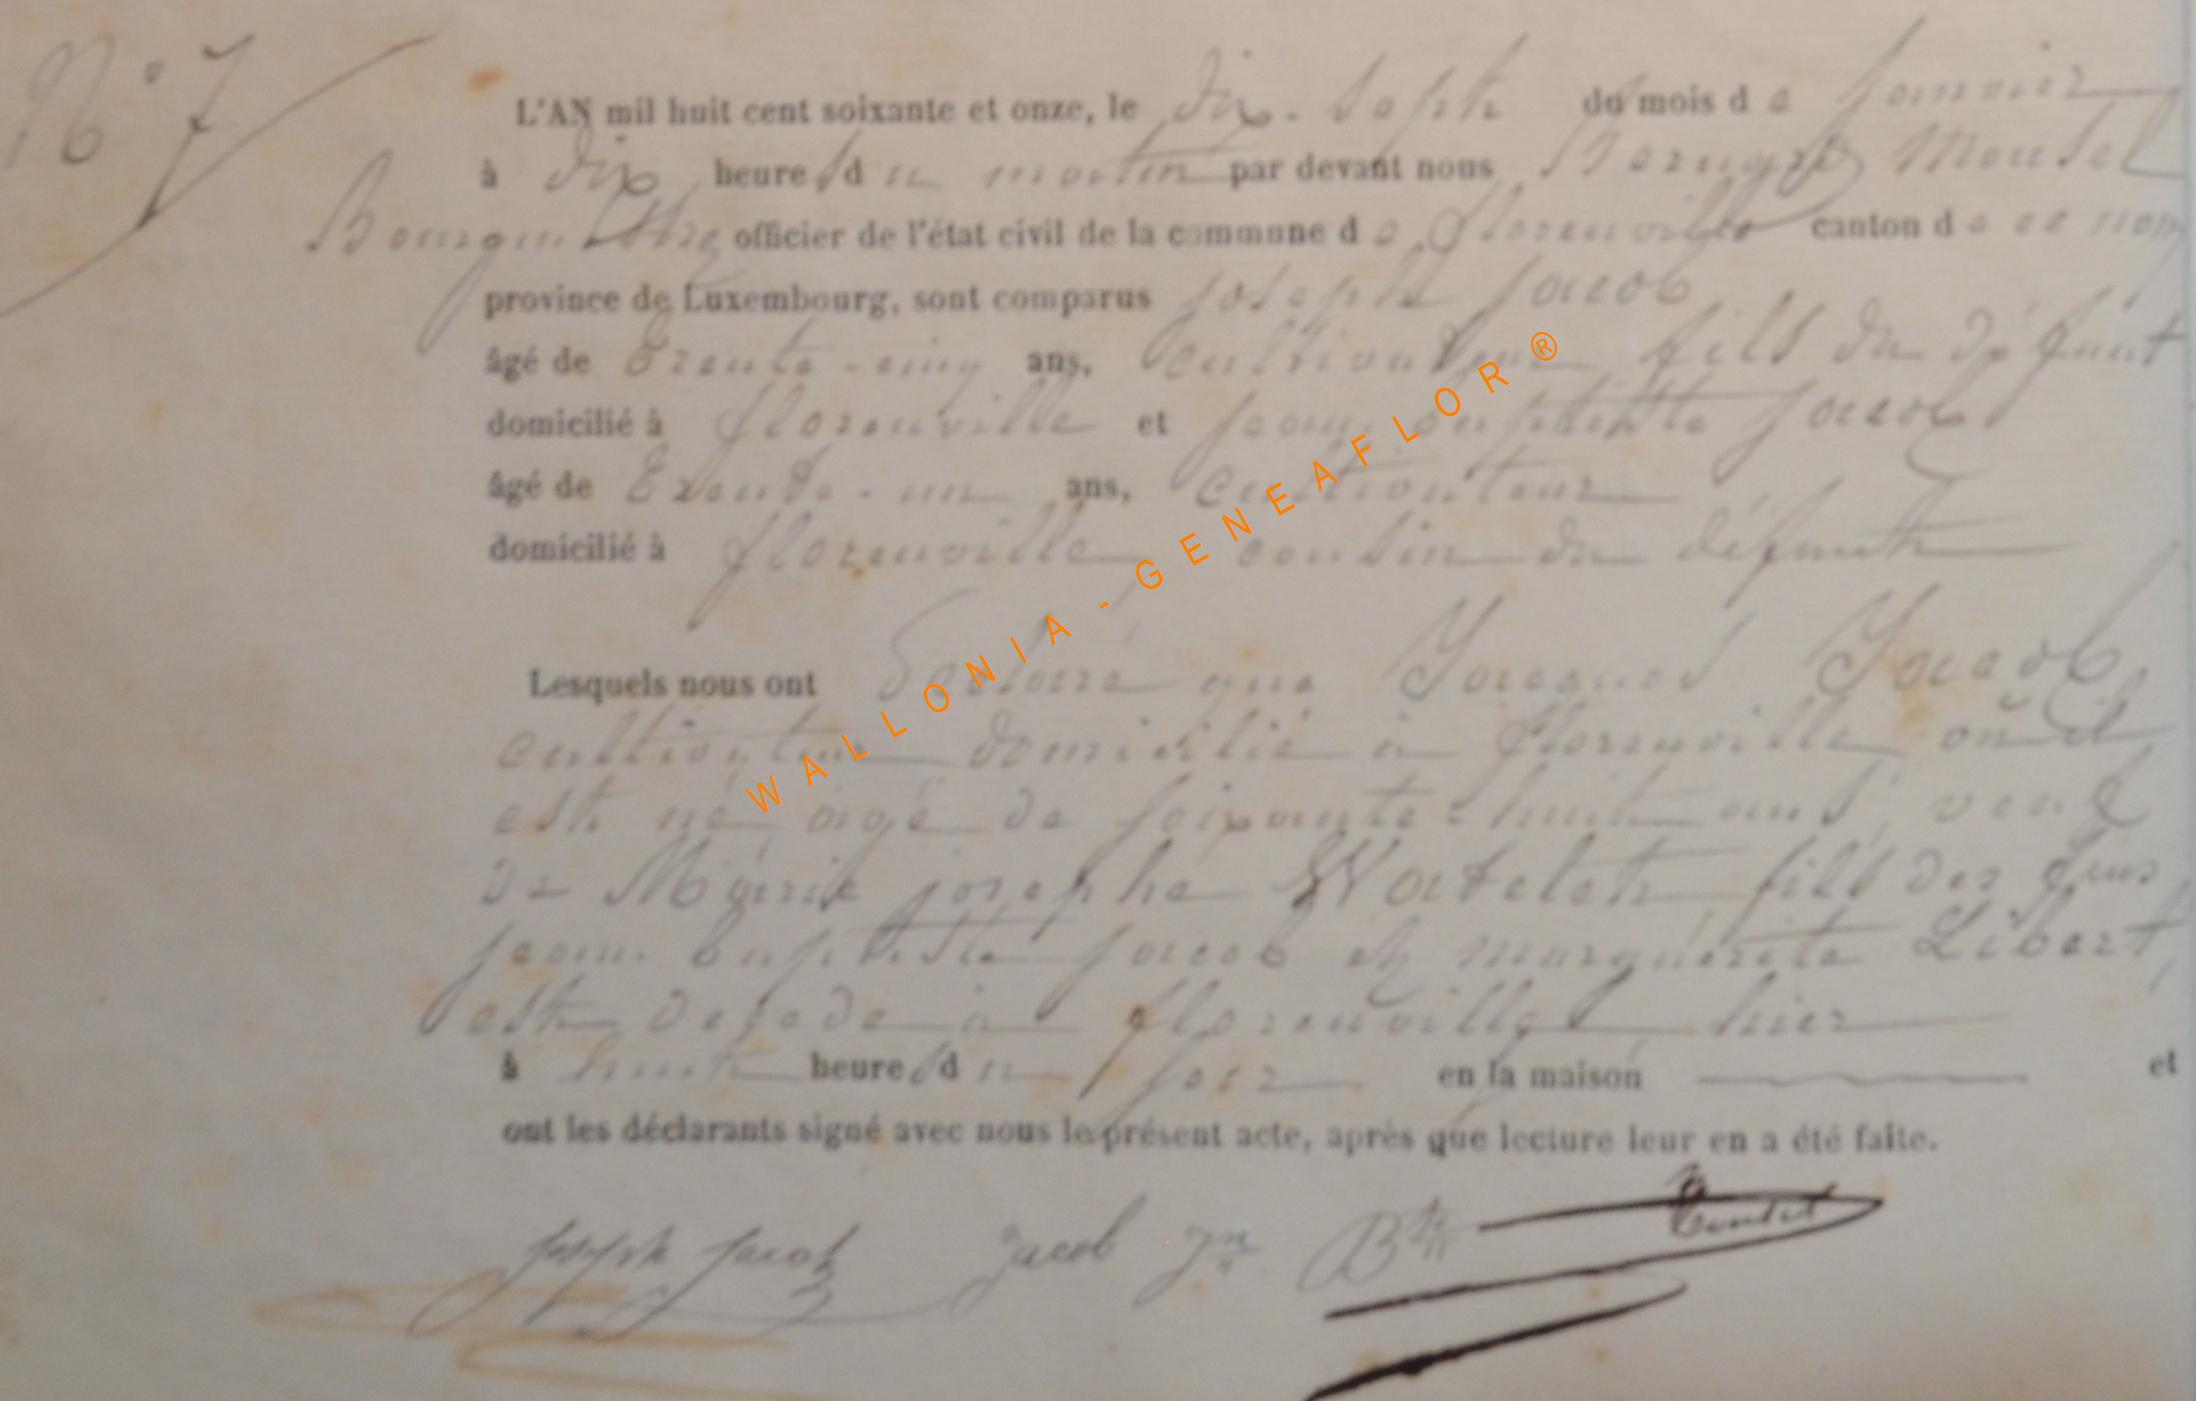 N° 7
L'AN mil huit cent soixante et onze, le dix-sept du mois de Janvier
à dix heures du matin par devant nous Mousel
Bourgmestre officier de l'état civil de la commune de florenville canton de ce nom
province de Luxembourg, sont comparus joseph jacob
âgé de Trente-cinq ans, cultivateur fils du défunt
domicilié à florenville et jean baptiste jacob
âgé de Trente-un ans, cultivateur
domicilié à florenville cousin du défunt
Lesquels nous ont Déclaré que Jacques Jacob,
cultivateur domicilié à florenville où il
est né âgé de soixante-huit ans, veuf
de Marie josephe Watelet fils des feus
jean baptiste jacob et marguerite Libert,
est décédé à florenville hier
à huit heures du soir en la maison et
ont les déclarants signé avec nous le présent acte, après que lecture leur en a été faite.
Joseph Jacob Jacob Jn Bte
WALLONIA-GENEAFLOR®